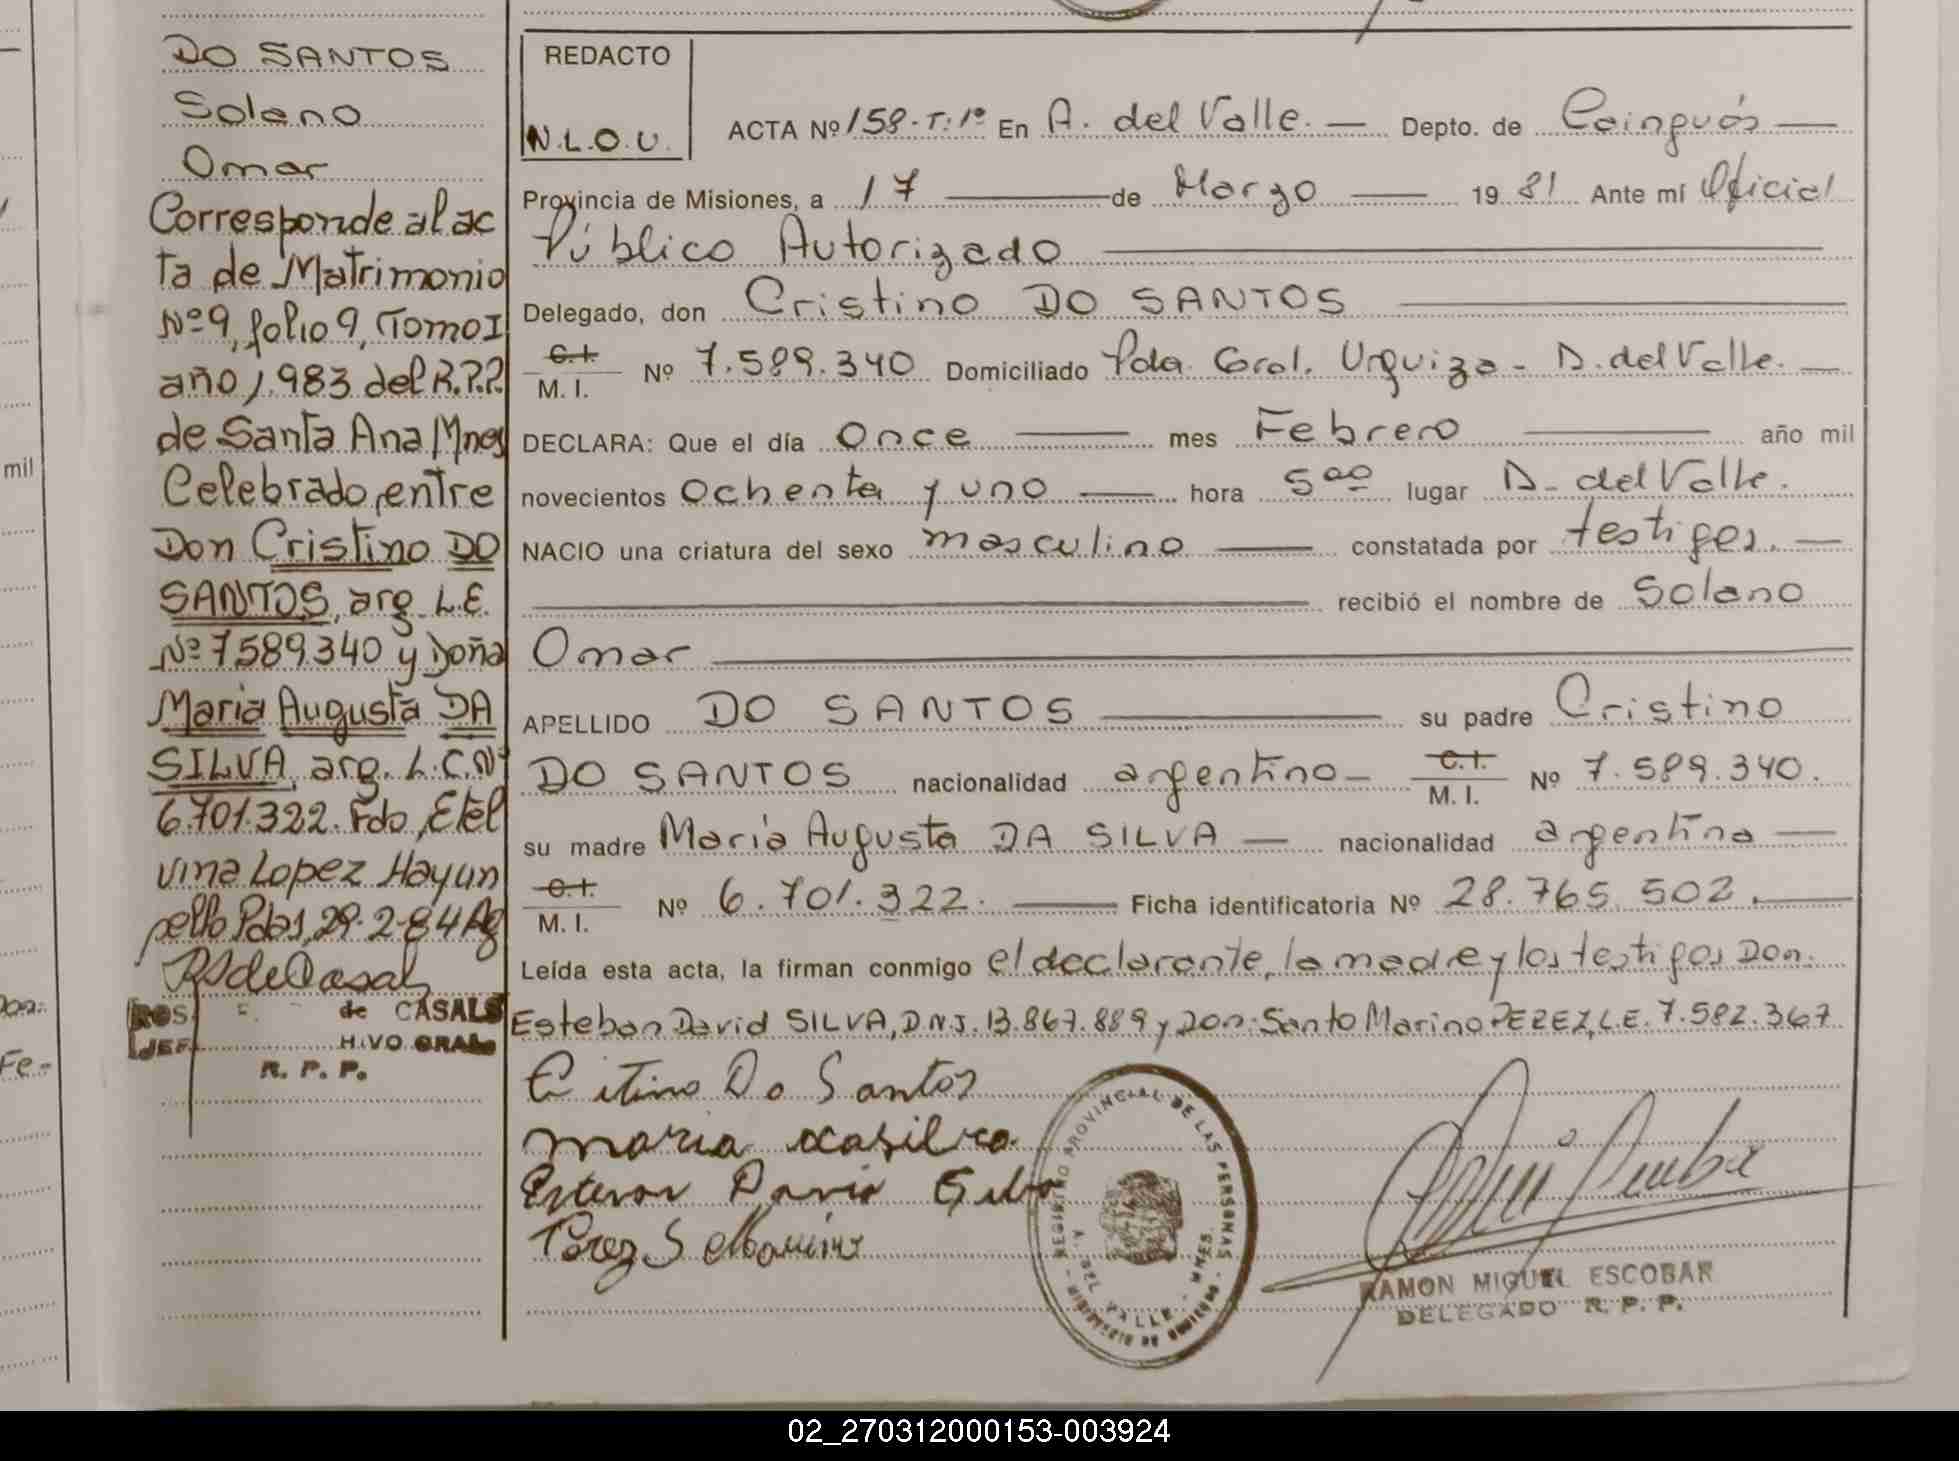 DO SANTOS
Solano
Omar
Corresponde al ac
ta de Matrimonio
Nº 9, folio 9, Tomo I
año 1.983 del R.P.P.
de Santa Ana Mnes
Celebrado, entre
Don Cristino DO
SANTOS, arg. L.E.
Nº 7589.340 y Doña
Maria Augusta DA
SILVA, arg. L.C.Nº
6.701.322. Fdo, Etel
vina Lopez Hayun
pello Pdas, 29-2-84 Ag
de CASALS
R. P. P.
mil
Fe-
REDACTO
N.L.O.U.
ACTA Nº 158-T:1º En A. del Valle. — Depto. de Cainguás —
Provincia de Misiones, a 17 — de Marzo — 1981 Ante mí Oficial
Público Autorizado —
Delegado, don Cristino DO SANTOS —
C.I. M. I. Nº 7.589.340 Domiciliado Pda. Gral. Urquiza - A. del Valle. —
DECLARA: Que el día Once — mes Febrero — año mil
novecientos ochenta y uno — hora 5 00 lugar A. del Valle.
NACIO una criatura del sexo masculino — constatada por testigos. —
— recibió el nombre de Solano
Omar —
APELLIDO DO SANTOS — su padre Cristino
DO SANTOS nacionalidad argentino — C.I. M. I. Nº 7.589.340.
su madre María Augusta DA SILVA — nacionalidad argentina —
C.I. M. I. Nº 6.701.322. — Ficha identificatoria Nº 28.765.502. —
Leída esta acta, la firman conmigo el declarante, la madre y los testigos Don:
Esteban David SILVA, D.N.I. 13.867.889 y Don: Santo Marino PEREZ, L.E. 7.582.367
Do Santos
maria
David
Perez S
REGISTRO PROVINCIAL DE LAS PERSONAS
A. DEL VALLE - MNES.
RAMON MIGUEL ESCOBAR
DELEGADO R. P. P.
02_270312000153-003924